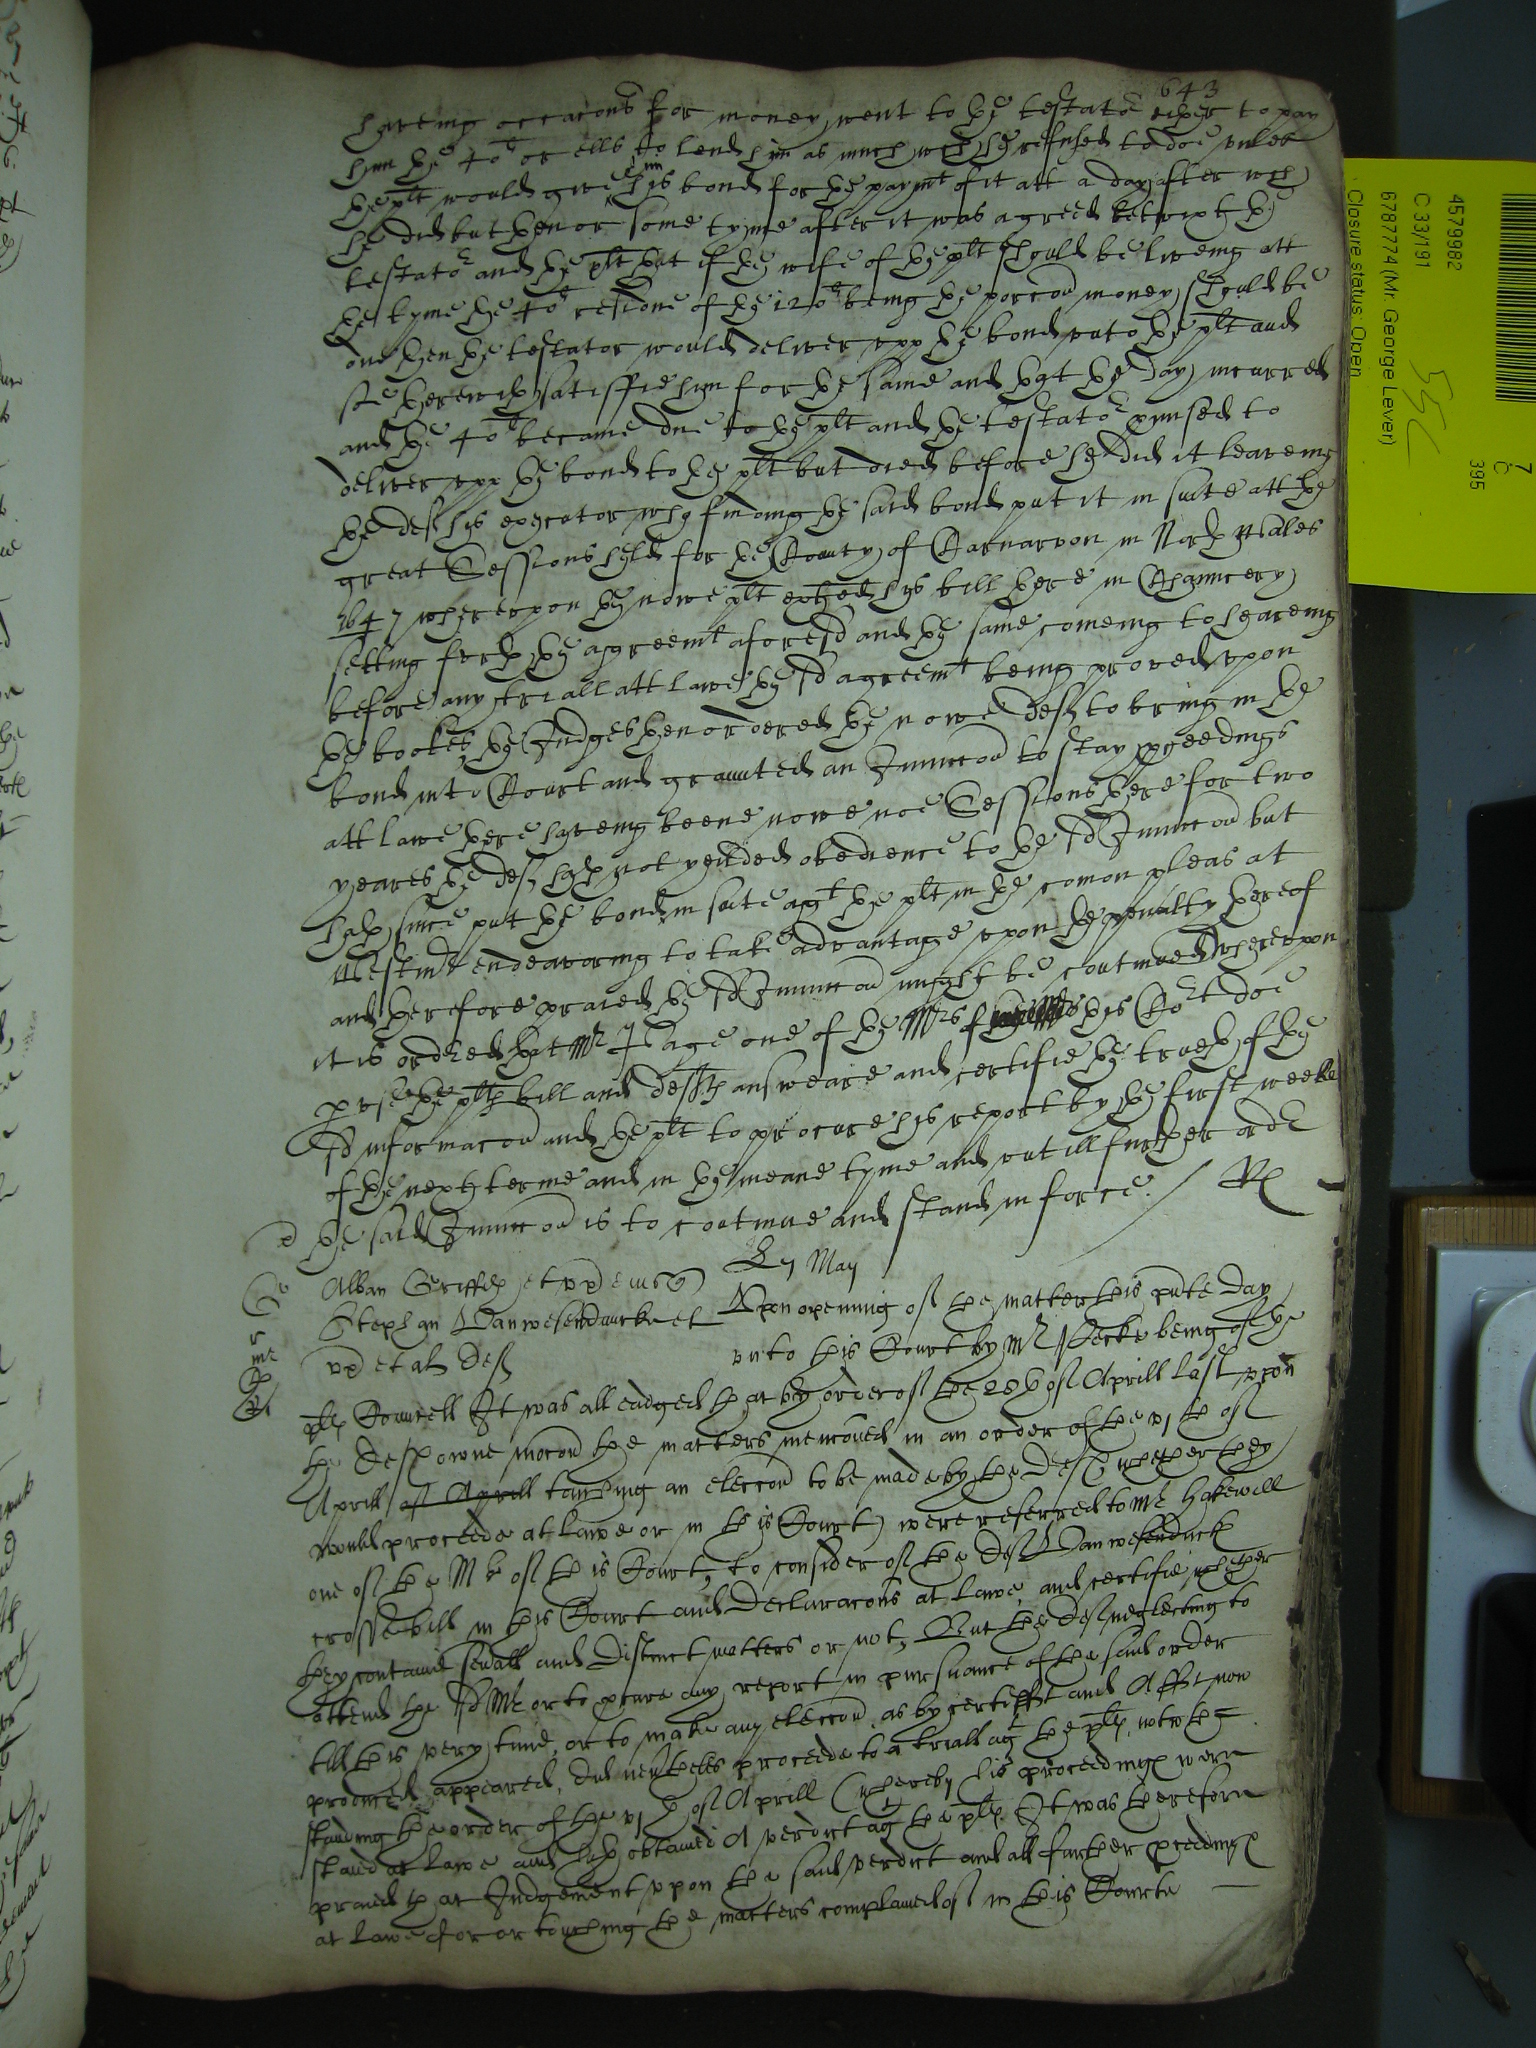 643
haveing occacons for money went to the testator either to pay
him the 40l or ells to lend him as much wch he refused to doe unles
the plt would give him his bond for the paymt of it att a day after wch
he did but then or some tyme after it was agreed betwixt the
testator and the plt that if the wife of the plt should be liveing att
the tyme the 40l residue of the 120l being the porcon money should be
due then the testator would deliver upp the bond unto the plt and
soe therewith satisffie him for the same and that the day incurred
and the 40l became due to the plt and the testator pmised to
deliver upp the bond to the plt but died before he did it leaveing
the deft his executor who finding the said bond put it in suite att the
great Sessions held for the County of Carnarvon in North Wales
1647 whereupon the nowe plt exhted his bill here in Chauncery
setting forth the agreemt aforesd and the same comeing to heareing
before any triall att lawe the sd agreemt being proved upon
the bookes, the Judges then ordered the nowe deft to bring in the
bond into Court and graunted an Iniuncon to stay pceedings
att lawe there haveing beene nowe noe Sessions there for two
yeares the deft hath not yeilded obedience to the sd Iniuncon but
hath since put the bond in suite agt the plt in the comon pleas at
Westmr endeavoring to take advantage upon the penalty thereof
and therefore praied the sd Iniuncon might be continued Whereupon
it is ordred that Mr Page one of the Mrs of this Cort doe
pvse the plts bill and defts answeare and certifie the trueth of the
sd informacon and the plt to procure his report by the first weeke
of the next terme and in the meane tyme and untill further ordr
the said Iniuncon is to continue and stand in force. / Rl
Alban Griffeth et ux
Stephan Vanwesendunck et
ux et al deft
May
Upon opening of the matter this pnte day
unto this Court by Mr Pecke being of the
plts Councell It was alleadged that by order of the of Aprill last upon
the Defts owne mocon the matters menconed in an order of the vjth of
Aprill of Aprill touching an eleccon to be made by the Deft whether they
would proceede at Lawe or in this Court, were referred to Mr Hakewill
one of the Mrs of this Court, to consider of the Deft Vanwesenducks
crosse bill in this Court and Declaracons at Lawe, and certifie whether
they containe sevall and distinct matters or not, But the deft neglecting to
attend the sd Mr or to pcure any report in pursuance of the said order
till this very time, or to make any eleccon, as by certifft and Afft now
produced appeared, did nevtheles proceede to a triall agt the plts, notwth
standing the order of the vjth of Aprill (whereby his proceedings were
staied at Lawe and hath obtained a verdict agt the plts, It was therefore
praied that Judgement upon the said verdict and all further pceedings
at Lawe for or touching the matters complained of in this Courte
4579982
C 33/191
6787774 (Mr. George Lever)
Closure status: Open
7
C
395